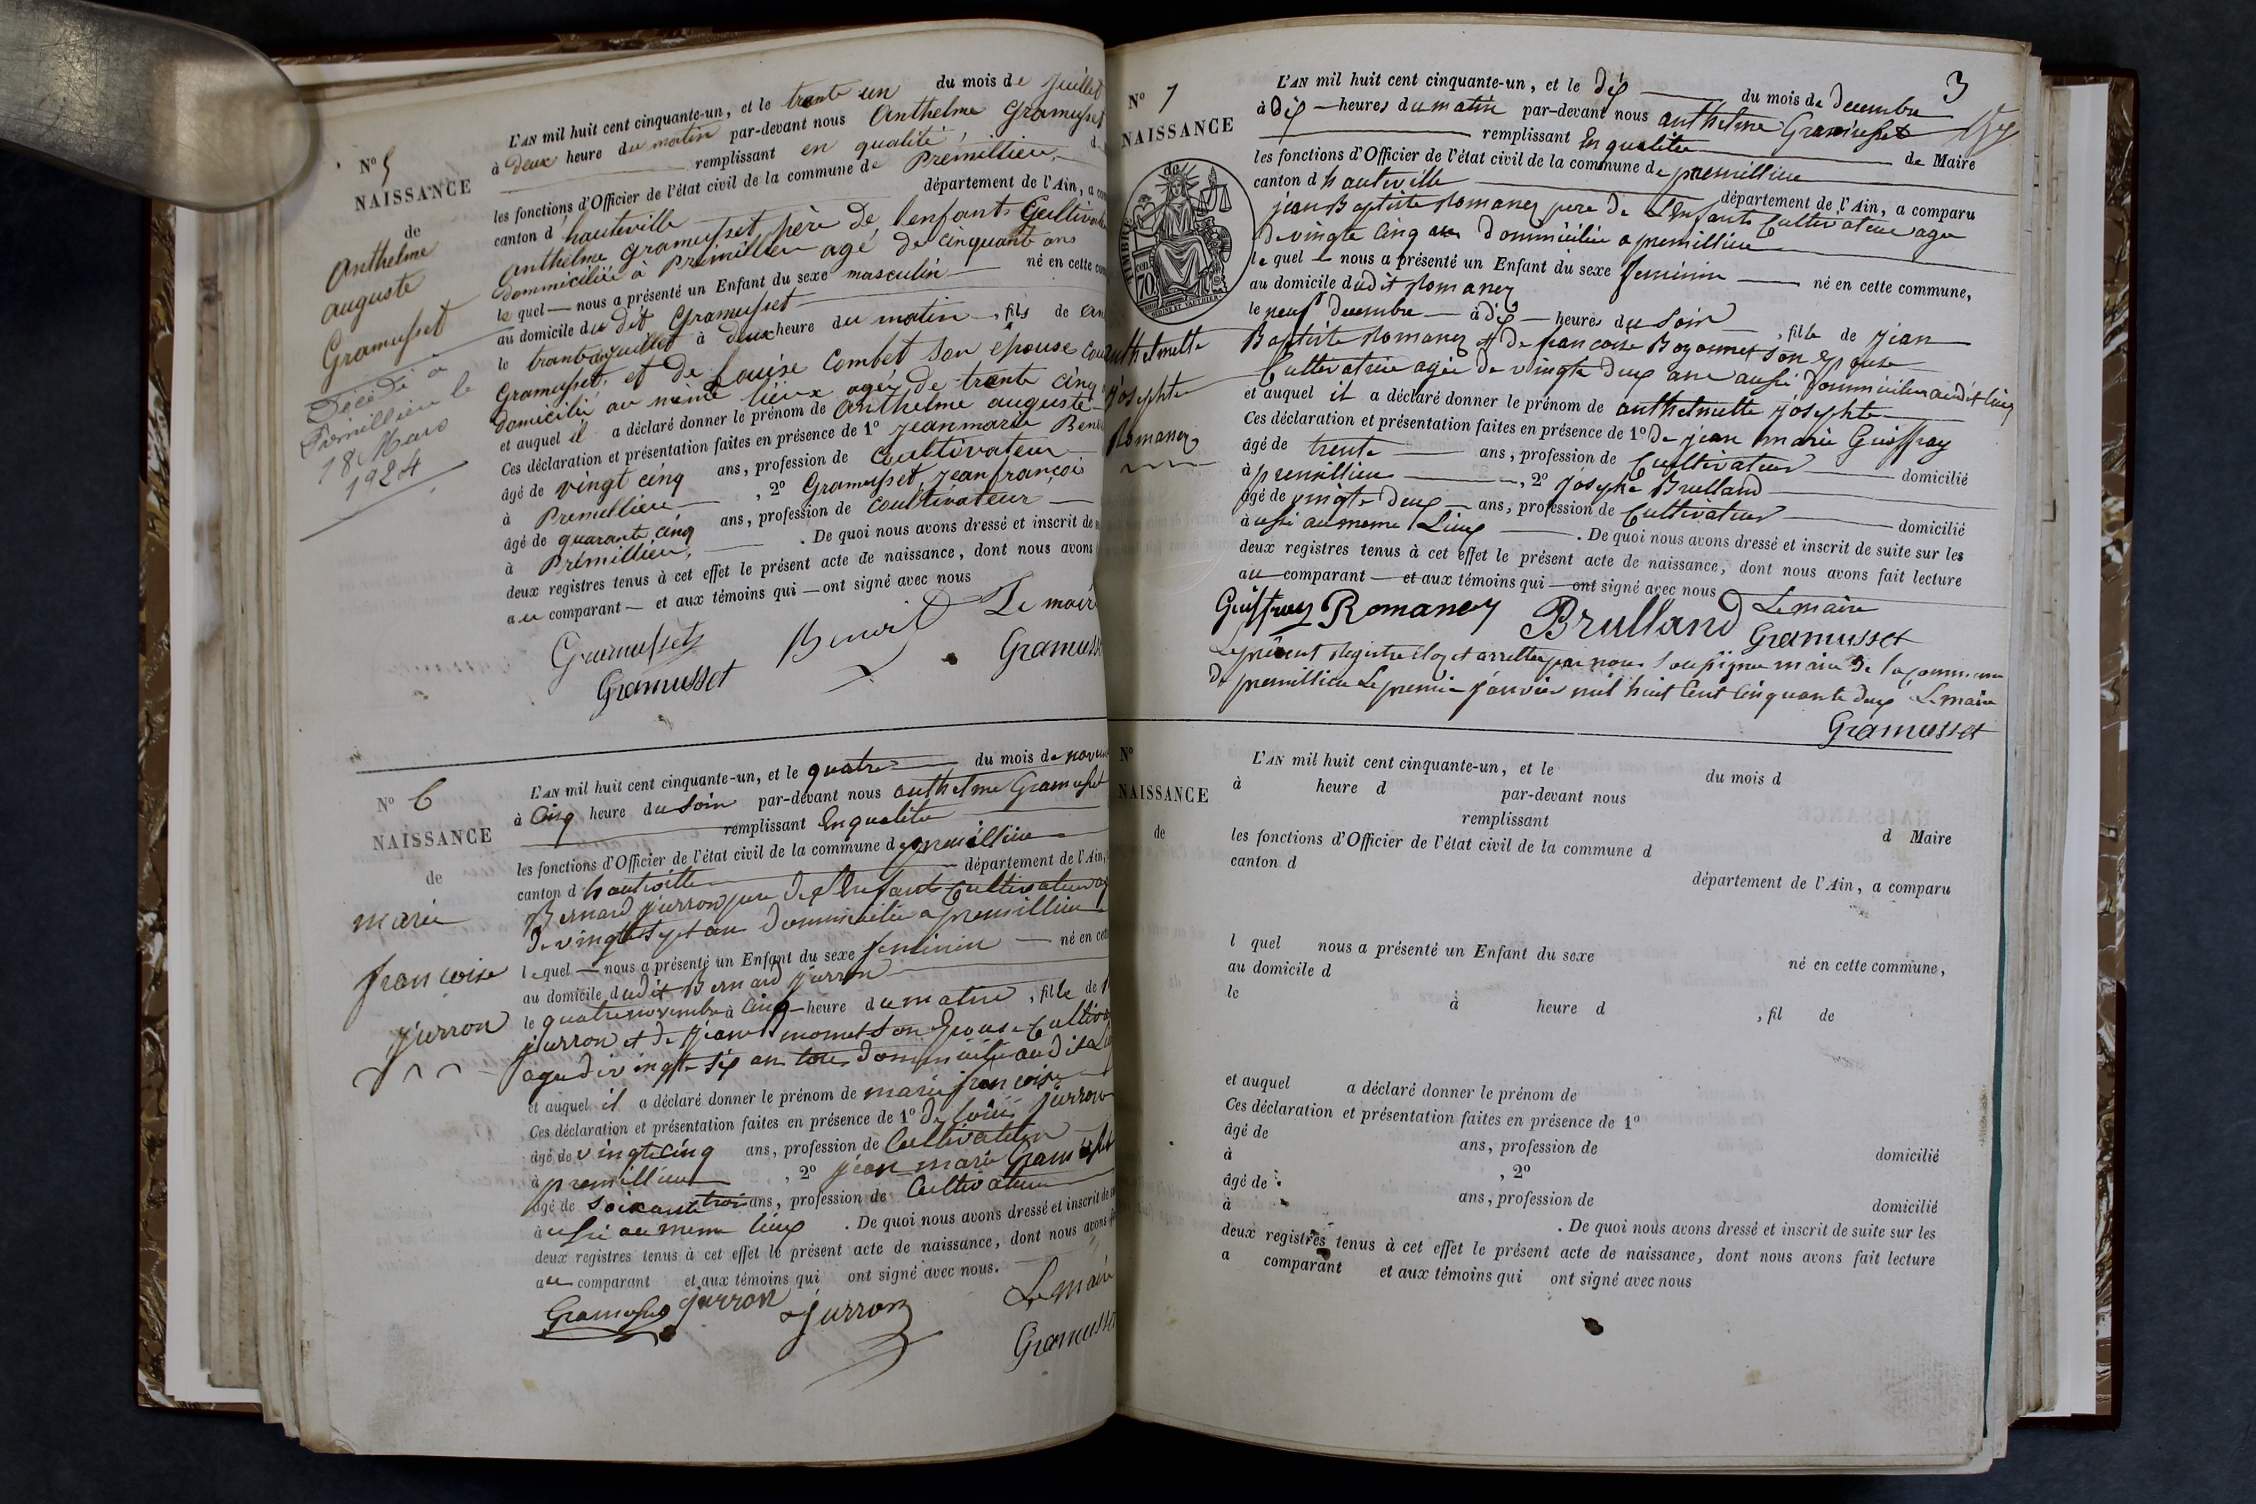 N° 5
NAISSANCE
de
Anthelme
auguste
Gramusset
Décédé à
Prémillieu le
18 Mars
1924
L'AN mil huit cent cinquante-un, et le trente un du mois de Juillet
à deux heure du matin par-devant nous Anthelme Gramusset
remplissant en qualité d
les fonctions d'Officier de l'état civil de la commune de Premillieu,
canton d hauteville département de l'Ain, a com
Anthelme Gramusset père de l'enfant, Cultivate
dommiciliée à Prémillieu agé de cinquante ans
le quel — nous a présenté un Enfant du sexe masculin — né en cette com
au domicile du dit Gramusset
le à deux heure du matin —, fils de an
Gramusset, et de Louise Combet son épouse
domicilié au même lieux agée de trente cinq
et auquel il a déclaré donner le prénom de Anthelme auguste
Ces déclaration et présentation faites en présence de 1° Jeanmarie Beno
âgé de vingt cinq ans, profession de Coultivateur
à Premillieu — , 2° Gramusset, Jeanfrançoi
âgé de quarante cinq ans, profession de coultivateur —
à Prémillieu, — . De quoi nous avons dressé et inscrit de
deux registres tenus à cet effet le présent acte de naissance, dont nous avons
au comparant — et aux témoins qui — ont signé avec nous
Gramusset Benoit Le maire
Gramusset Gramuss
N° 6
NAISSANCE
de
marie
francoise
jurron
L'AN mil huit cent cinquante-un, et le quatre du mois de novem
à Cinq heure du soir par-devant nous anthelme Gramusset
remplissant En qualite
les fonctions d'Officier de l'état civil de la commune de premillieu
canton d hauteville département de l'Ain,
Bernard jurron pere de L'Enfant Cultivateur ag
de vingt sept ans dommicilie a premillieu
le quel — nous a présenté un Enfant du sexe feminin — né en cet
au domicile dudit Bernard jurron
le quatre novembre à Cinq — heure du matin , fille de
jurron et de momet son Epouse Cultiva
agee de vingt six ans tous dommicilie audit Li
et auquel il a déclaré donner le prénom de marie francoise
Ces déclaration et présentation faites en présence de 1° De louis jurron
âgé de vingt cinq ans, profession de Cultivateur
à premillieu , 2° jean marie Gramusset
âgé de soixante trois ans, profession de Cultivateur
à ussi au meme lieux . De quoi nous avons dressé et inscrit de
deux registres tenus à cet effet le présent acte de naissance, dont nous avons
au comparant et aux témoins qui ont signé avec nous.
Gramusset jurron jurron Le maire
Gramusse
3
N° 7
NAISSANCE
de
TIMBRE
70
anthelmette
josephte
Romaney
L'AN mil huit cent cinquante-un, et le dix du mois de decembre
à dix — heures du matin par-devant nous anthelme Gramusset
remplissant En qualite de Maire
les fonctions d'Officier de l'état civil de la commune de premillieu
canton d hauteville département de l'Ain, a comparu
jean Baptiste Romaney pere de L'Enfant Cultivateur age
de vingte Cinq ans dommicilie a premillieu
le quel — nous a présenté un Enfant du sexe feminin — né en cette commune,
au domicile dudit Romaney
le neuf decembre — à dix — heures du soir , fille de jean
Baptiste Romaney et de francoise Boyonnet son Epouse
Cultivatrice agee de vingte deux ans aussi dommiciliee audit lieux
et auquel il a déclaré donner le prénom de anthelmette josephte
Ces déclaration et présentation faites en présence de 1° De jean marie Guiffray
âgé de trente — ans, profession de Cultivateur domicilié
à premillieu , 2° joseph Brulland
âgé de vingte deux — ans, profession de Cultivateur domicilié
à ussi au meme Lieux . De quoi nous avons dressé et inscrit de suite sur les
deux registres tenus à cet effet le présent acte de naissance, dont nous avons fait lecture
au comparant — et aux témoins qui — ont signé avec nous
Guiffray Romaney Brulland Le maire
Gramusset
Le présent Registre Clos et arretter par nous Soussigner maire de la commune
de premillieu Le premier janvier mil huit Cent Cinquante deux Le maire
Gramusset
N°
NAISSANCE
de
L'AN mil huit cent cinquante-un, et le du mois d
à heure d par-devant nous
remplissant d Maire
les fonctions d'Officier de l'état civil de la commune d
canton d département de l'Ain, a comparu
l quel nous a présenté un Enfant du sexe né en cette commune,
au domicile d
le à heure d , fil de
et auquel a déclaré donner le prénom de
Ces déclaration et présentation faites en présence de 1°
âgé de ans, profession de domicilié
à , 2°
âgé de ans, profession de domicilié
à . De quoi nous avons dressé et inscrit de suite sur les
deux registres tenus à cet effet le présent acte de naissance, dont nous avons fait lecture
a comparant et aux témoins qui ont signé avec nous